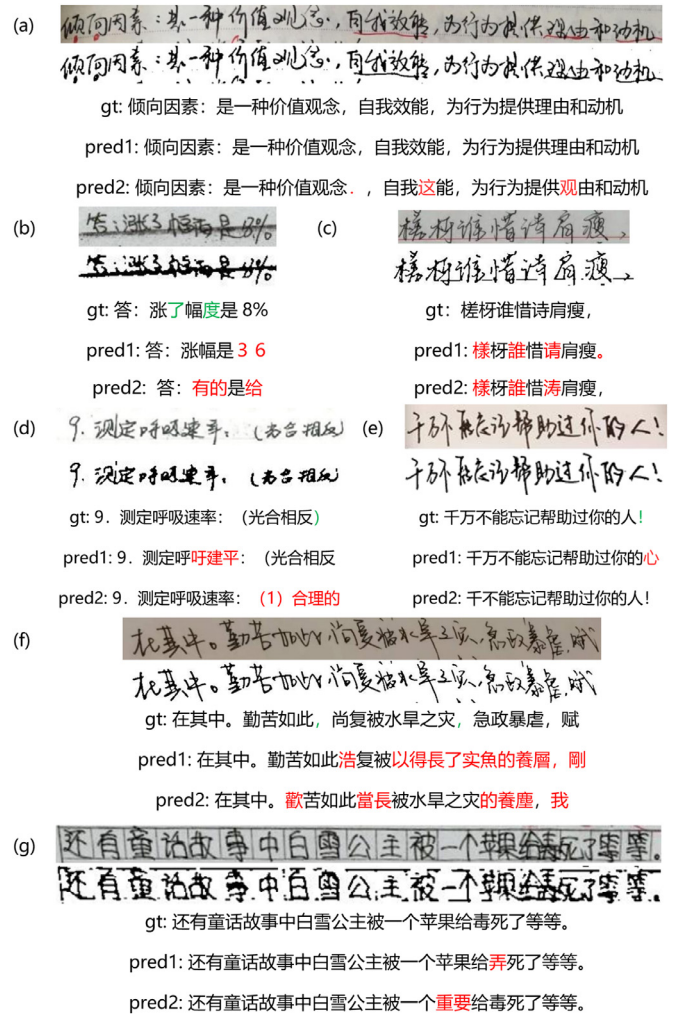 (a) 倾向因素：是一种价值观念，自我效能，为行为提供理由和动机
倾向因素：是一种价值观念，自我效能，为行为提供理由和动机
gt: 倾向因素：是一种价值观念，自我效能，为行为提供理由和动机
pred1: 倾向因素：是一种价值观念，自我效能，为行为提供理由和动机
pred2: 倾向因素：是一种价值观念．，自我这能，为行为提供观由和动机
(b) 答：涨了幅度是8%
答：涨了幅度是8%
gt: 答：涨了幅度是 8%
pred1: 答：涨幅是 3 6
pred2: 答：有的是给
(c) 槎枒谁惜诗肩瘦，
槎枒谁惜诗肩瘦，
gt：槎枒谁惜诗肩瘦，
pred1: 樣枒誰惜请肩瘦。
pred2: 樣枒誰惜涛肩瘦，
(d) 9. 测定呼吸速率：（光合相反）
9. 测定呼吸速率：（光合相反）
gt: 9．测定呼吸速率：（光合相反）
pred1: 9．测定呼吁建平：（光合相反
pred2: 9．测定呼吸速率：（1）合理的
(e) 千万不能忘记帮助过你的人！
千万不能忘记帮助过你的人！
gt: 千万不能忘记帮助过你的人！
pred1: 千万不能忘记帮助过你的心
pred2: 千不能忘记帮助过你的人！
(f) 在其中。勤苦如此，尚复被水旱之灾，急政暴虐，赋
在其中。勤苦如此，尚复被水旱之灾，急政暴虐，赋
gt: 在其中。勤苦如此，尚复被水旱之灾，急政暴虐，赋
pred1: 在其中。勤苦如此浩复被以得長了实魚的養層，剛
pred2: 在其中。歡苦如此當長被水旱之灾的養塵，我
(g) 还有童话故事中白雪公主被一个苹果给毒死了等等。
还有童话故事中白雪公主被一个苹果给毒死了等等。
gt: 还有童话故事中白雪公主被一个苹果给毒死了等等。
pred1: 还有童话故事中白雪公主被一个苹果给弄死了等等。
pred2: 还有童话故事中白雪公主被一个重要给毒死了等等。